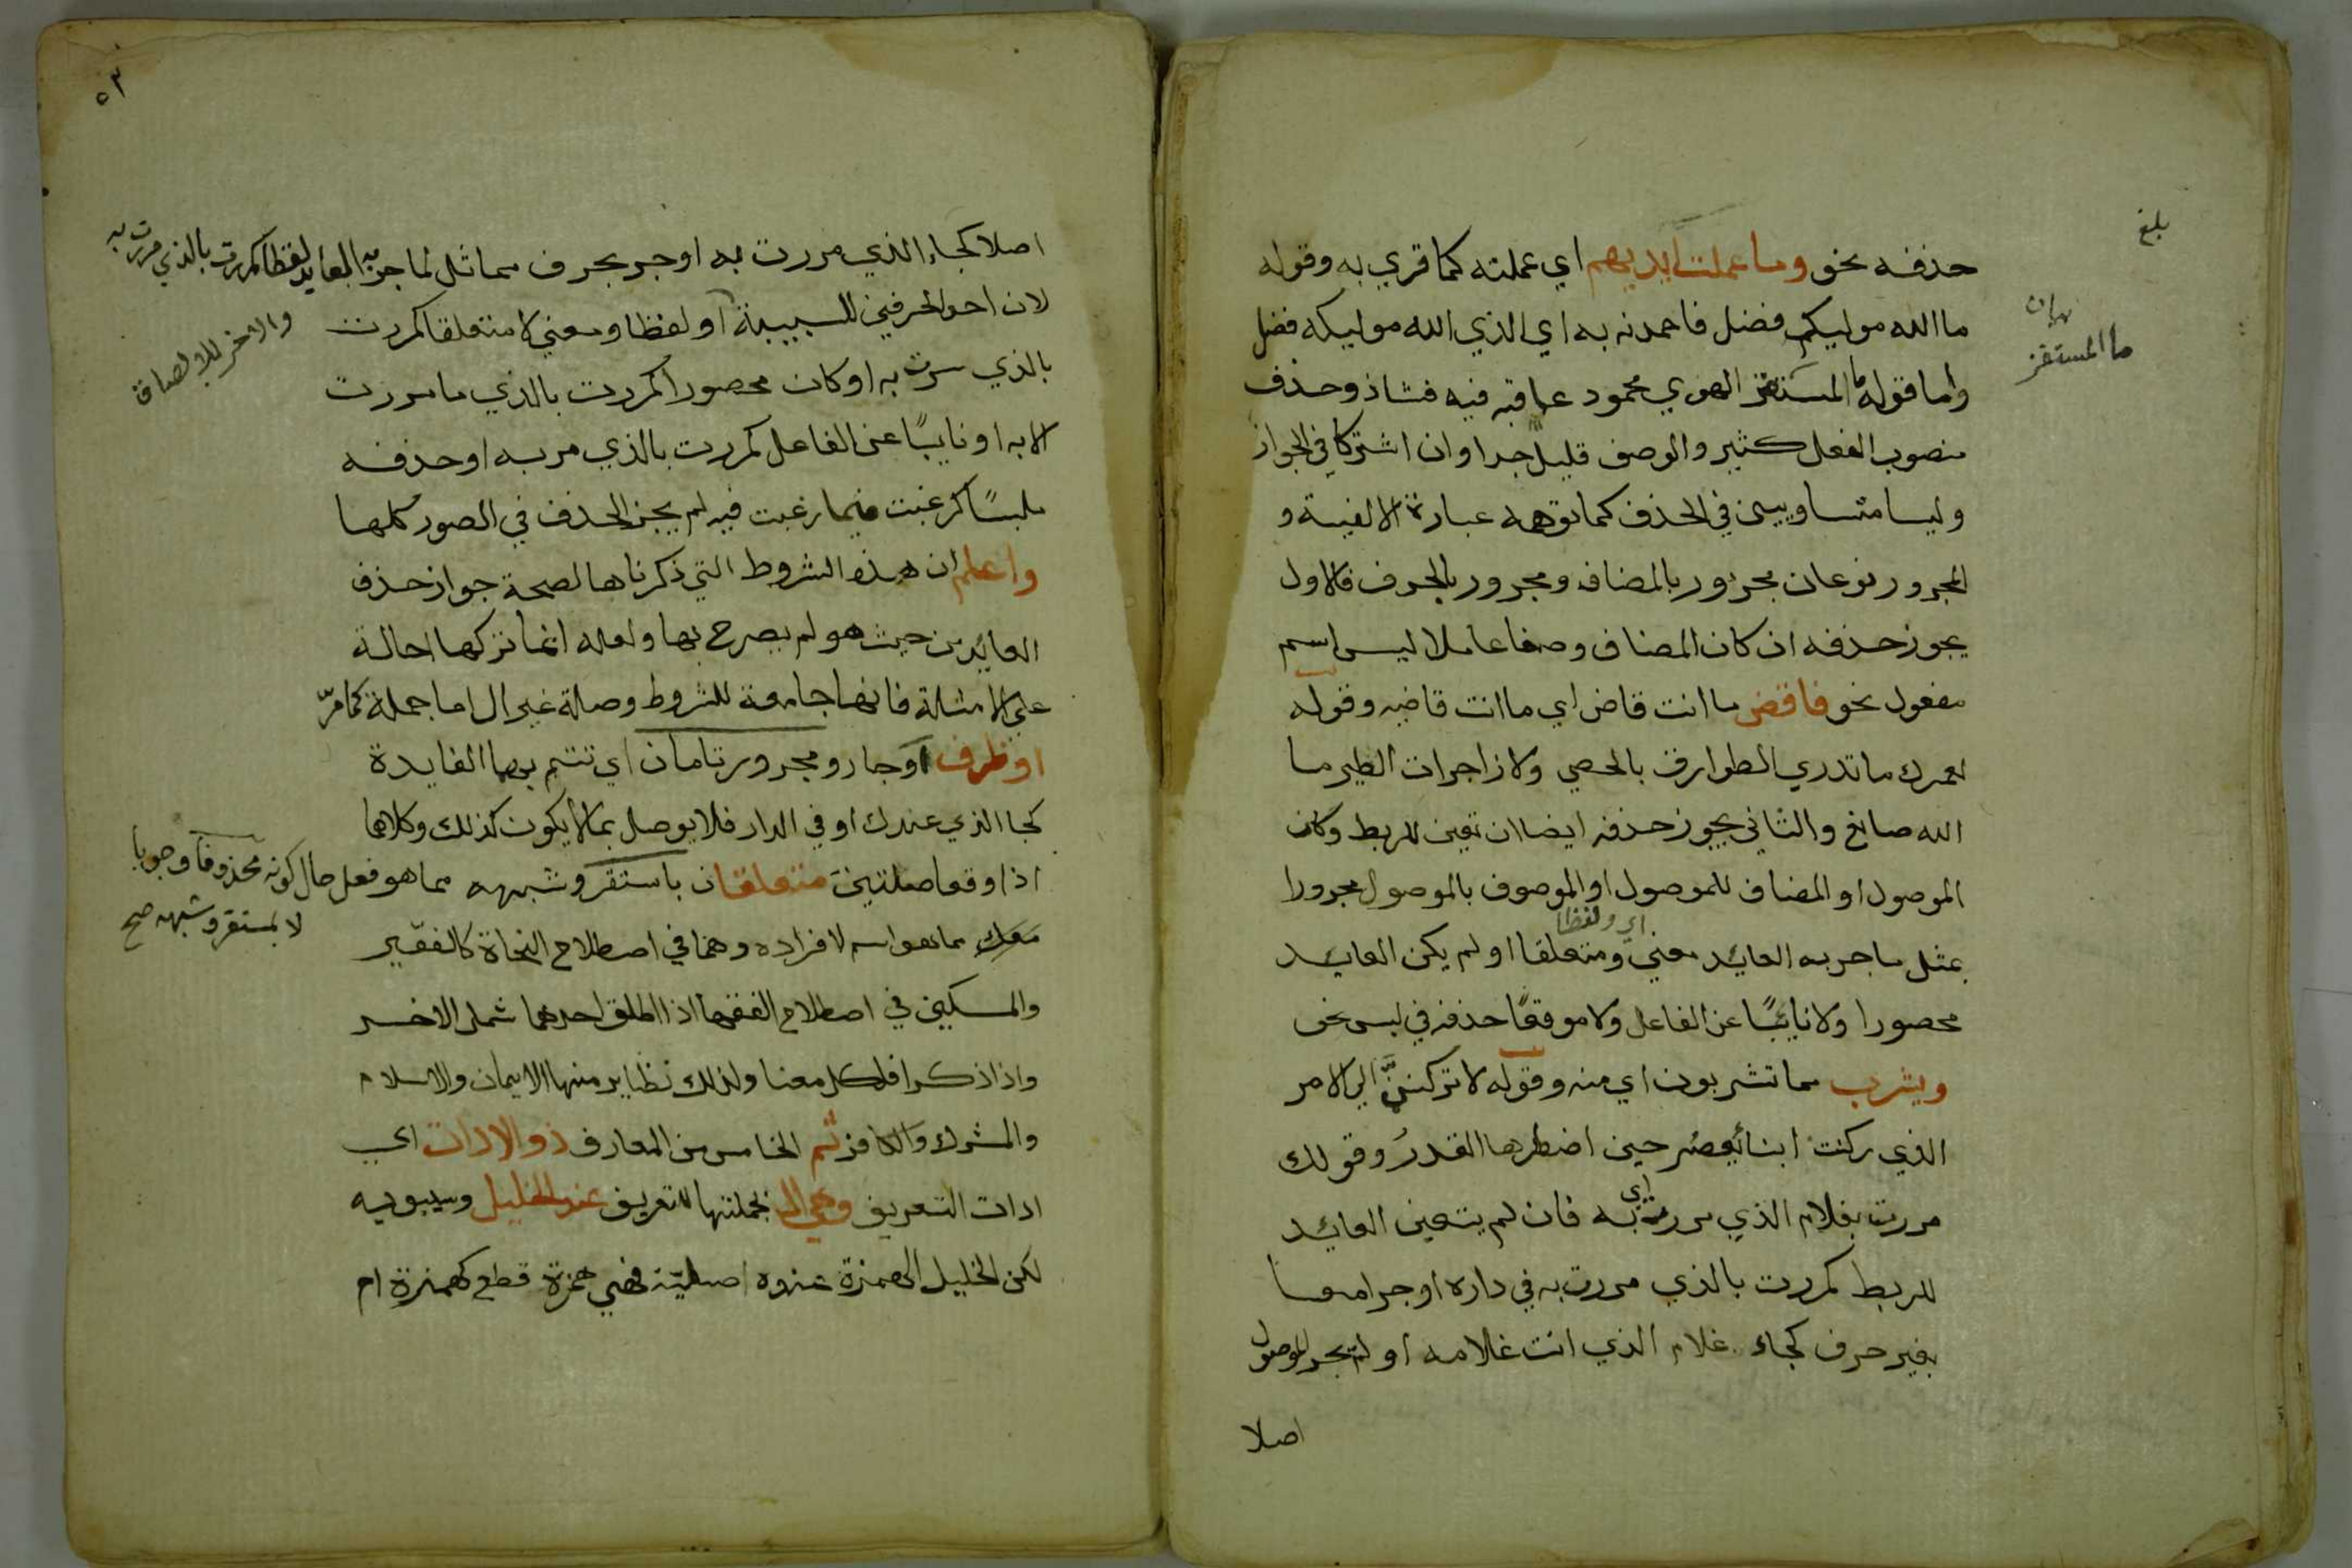 بلغ
حذفه نحو وما عملت ايديهم اي عملته كما قري به وقوله
ما الله موليكم فضل فاحمدنه به اي الذي الله موليكه فضل
واما قوله ما المستفز الهوي محمود عاقبه فيه فشاذ وحذف
بيان
ما المستفز
منصوب الفعل كثير والوصف قليل جدا وان اشتركا في الجواز
وليسا متساويين في الحذف كما توهمه عبارة الالفية و
المجرور نوعان مجرور بالمضاف ومجرور بالحرف فالاول
يجوز حذفه ان كان المضاف وصفا عاملا ليس اسم
مفعول نحو فاقض ما انت قاض اي ما انت قاضيه وقوله
لعمرك ما تدري الطوارق بالحصي ولا زاجرات الطير ما
الله صانع والثاني يجوز حذفه ايضا ان تعين للربط وكان
الموصول او المضاف للموصول او الموصوف بالموصول مجرورا
اي ولفظا
بمثل ما جر به العايد معني ومتعلقا او لم يكن العايد
محصورا ولا نايبًا عن الفاعل ولا موقعًا حذفه في لبس نحو
ويشرب مما تشربون اي منه وقوله لا تركننّ الي الامر
الذي ركنت ابناء يعصر حين اضطرها القدرُ وقولك
مررت بغلام الذي مررت اي به فان لم يتعين العايد
للربط كمررت بالذي مررت به في داره او جرا معا
بغير حرف كجاء غلام الذي انت غلامه او لم يجر الموصول
اصلا
٥٣
اصلا كجاء الذي مررت به او جر بحرف مماثل لما جر به العايد لفظا كمررت بالذي مررت به
لان احد الحرفين للسببية او لفظا ومعني لا متعلقا كمررت
والاخر للالصاق
بالذي سرت به او كان محصورا كمررت بالذي ما مررت
الا به او نايبًا عن الفاعل كمررت بالذي مر به او حذفه
ملبسًا كرغبت فيما رغبت فيه لم يجز الحذف في الصور كلها
واعلم ان هذه الشروط التي ذكرناها لصحة جواز حذف
العايد من حيث هو لم يصرح بها ولعله انما تركها احالة
علي الامثلة فانها جامعة للشروط وصلة غير ال اما جملة كما مرّ
او ظرف او جار ومجرور تامان اي تتم بهما الفايدة
كجا الذي عندك او في الدار فلا يوصل بما لا يكون كذلك وكلاهما
اذا وقعا صلتين متعلقان باستقر وشبهه مما هو فعل حال كونه محذوفا وجوبا
لا بمستقر وشبهه صح
معك مما هو اسم لافراده وهما في اصطلاح النحاة كالفقير
والمسكين في اصطلاح الفقها اذا اطلق احدهما شمل الاخر
واذا ذكرا فلكل معنا ولذلك نظاير منها الايمان والاسلام
والمشرك والكافر ثم الخامس من المعارف ذو الادات اي
ادات التعريف وهي ال بجملتها للتعريف عند الخليل وسيبويه
لكن الخليل الهمزة عنده اصليّة فهي همزة قطع كهمزة ام